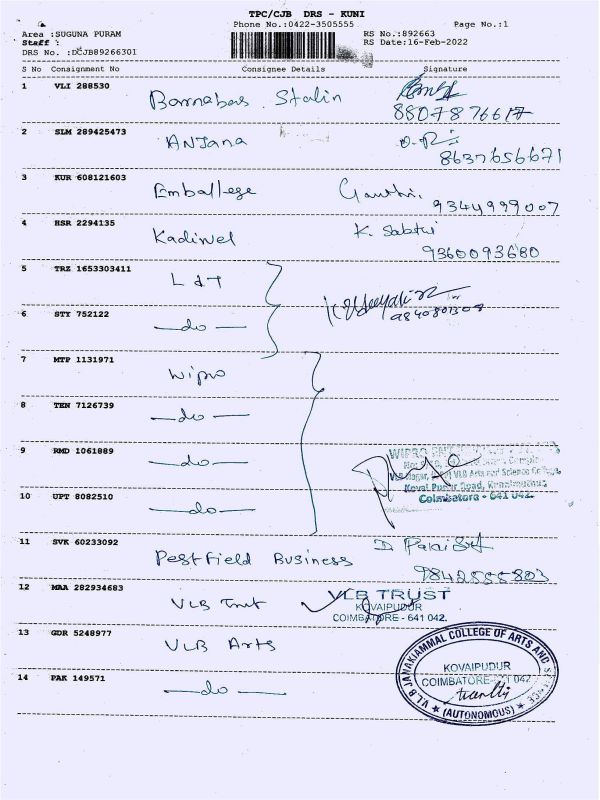 TPC/CJB DRS - KUNI
Phone No.:0422-3505555 Page No.:1
Area :SUGUNA PURAM RS No.:892663
Staff : RS Date:16-Feb-2022
DRS No. :DCJB89266301
S No Consignment No Consignee Details Signature
1 VLI 288530 Barnabas Stalin
8807876617
2 SLM 289425473 ANJana
8637656671
3 KUR 608121603 Emballege Gauthi.
9344999007
4 HSR 2294135 Kadirvel K. Sabtri
9360093680
5 TRZ 1653303411 L & T
9840801309
6 STY 752122 — do —
7 MTP 1131971 Wipro
8 TEN 7126739 — do —
9 RMD 1061889 — do —
WIPRO
VLB Arts and Science College
Kovai Pudur Road,
Coimbatore - 641 042.
10 UPT 8082510 — do —
11 SVK 60233092 Pestfield Business
9842555803
12 MAA 282934683 VLB Trust VLB TRUST
KOVAIPUDUR
COIMBATORE - 641 042.
13 GDR 5248977 VLB Arts
VLB JANAKIAMMAL COLLEGE OF ARTS AND
KOVAIPUDUR
COIMBATORE-641 042
(AUTONOMOUS)
14 PAK 149571 — do —